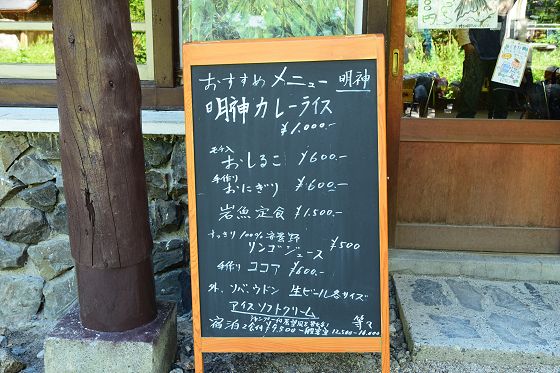 おすすめメニュー 明神
明神カレーライス
¥1,000.-
モチ入
おしるこ ¥600.-
手作り
おにぎり ¥600.-
岩魚定食 ¥1,500.-
すっきり 100%安曇野
リンゴジュース ¥500
手作り ココア ¥600.-
外、ソバ、ウドン 生ビール各サイズ
アイスソフトクリーム
等々
宿泊 2食付 ¥9,500～ 12,500~16,000